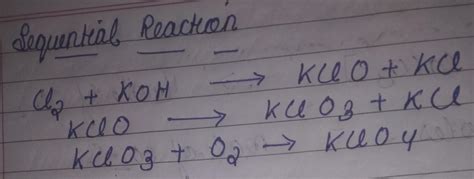 Sequential Reaction
Cl2 + KOH → KClO + KCl
KClO → KClO3 + KCl
KClO3 + O2 → KClO4